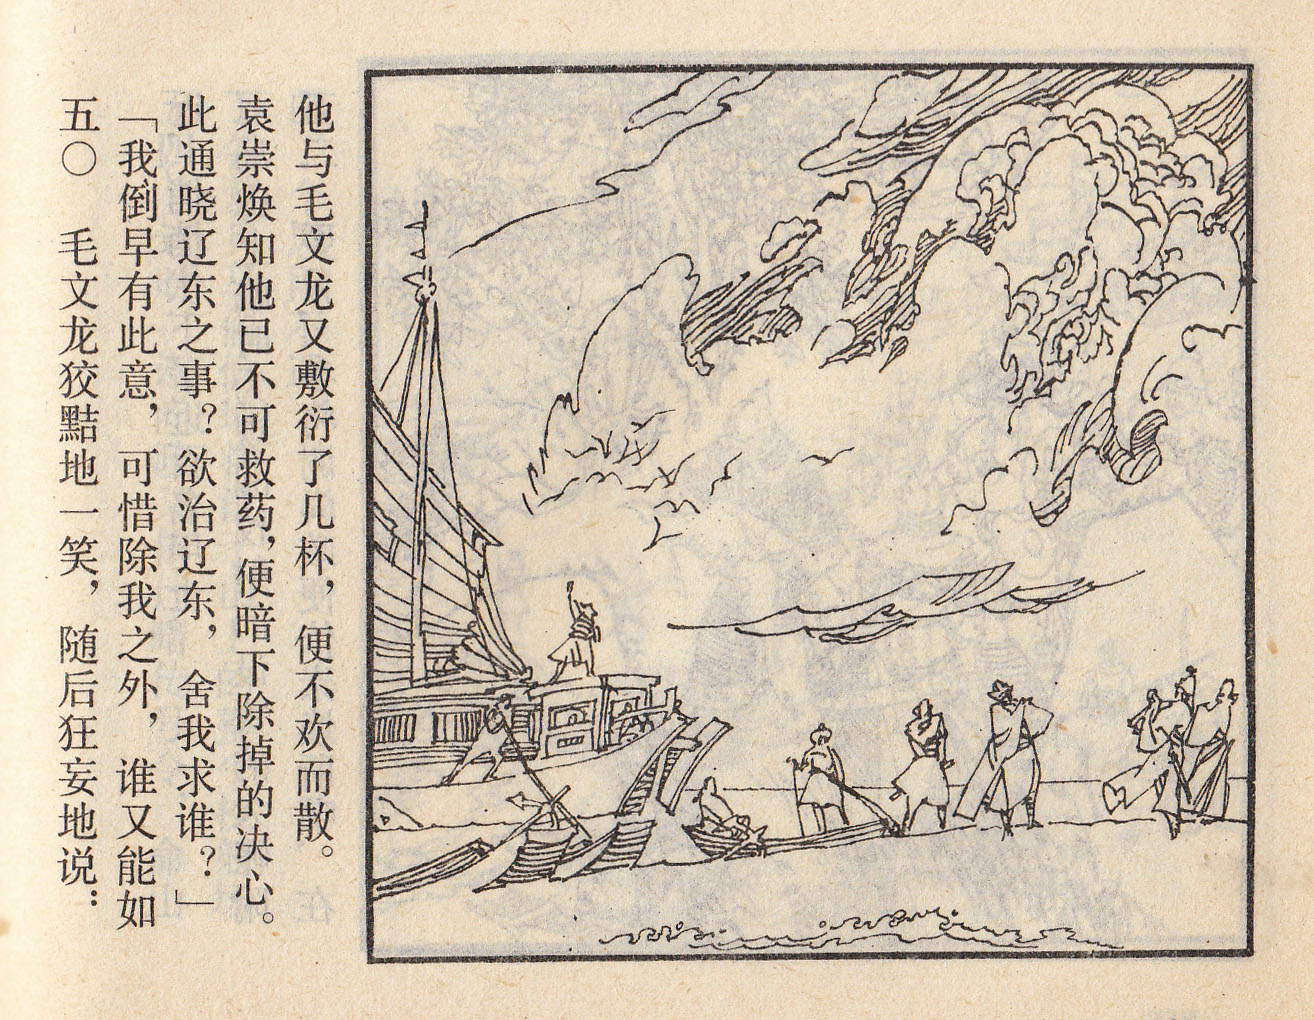 五〇 毛文龙狡黠地一笑，随后狂妄地说：
「我倒早有此意，可惜除我之外，谁又能如
此通晓辽东之事？欲治辽东，舍我求谁？」
袁崇焕知他已不可救药，便暗下除掉的决心。
他与毛文龙又敷衍了几杯，便不欢而散。